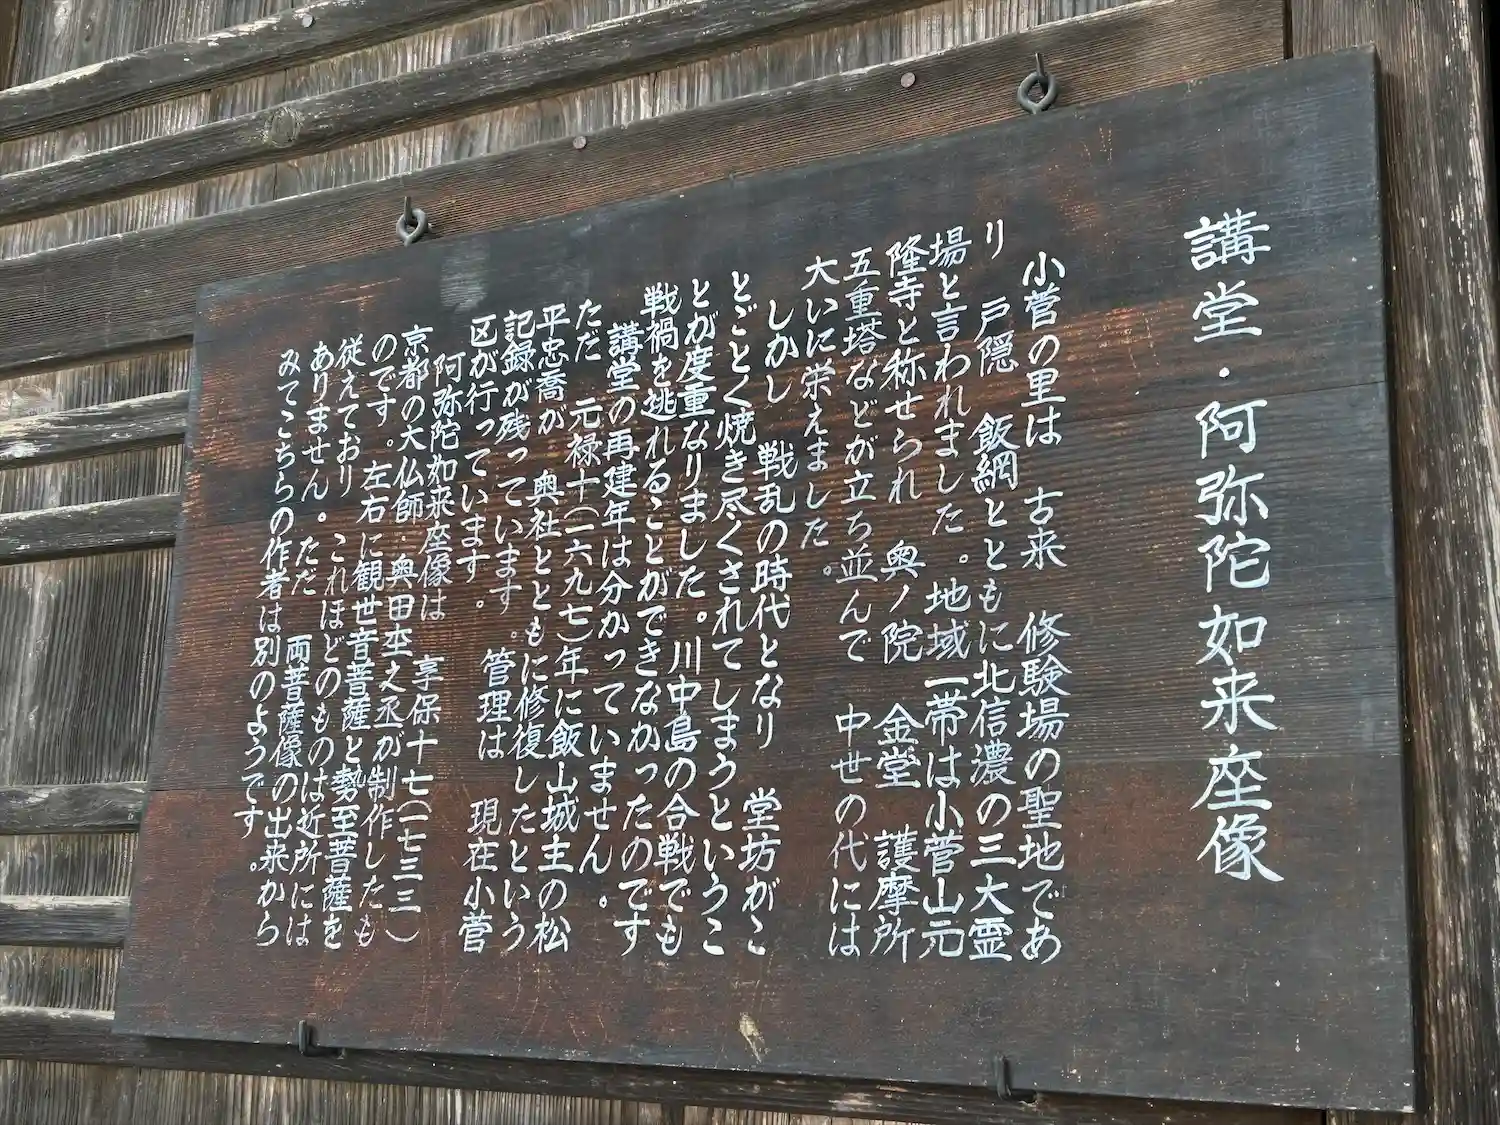 講堂・阿弥陀如来座像
小菅の里は　古来　修験場の聖地であ
り　戸隠　飯綱とともに北信濃の三大霊
場と言われました。地域一帯は小菅山元
隆寺と称せられ　奥ノ院　金堂　護摩所
五重塔などが立ち並んで　中世の代には
大いに栄えました。
しかし　戦乱の時代となり　堂坊がこ
とごとく焼き尽くされてしまうというこ
とが度重なりました。川中島の合戦でも
戦禍を逃れることができなかったのです
講堂の再建年は分かっていません。
ただ　元禄十（一六九七）年に飯山城主の松
平忠喬が　奥社とともに修復したという
記録が残っています。管理は　現在小菅
区が行っています
阿弥陀如来座像は　享保十七（一七三三）
京都の大仏師・奥田杢之丞が制作したも
のです。左右に観世音菩薩と勢至菩薩を
従えており　これほどのものは近所には
ありません。ただ　両菩薩像の出来から
みてこちらの作者は別のようです。